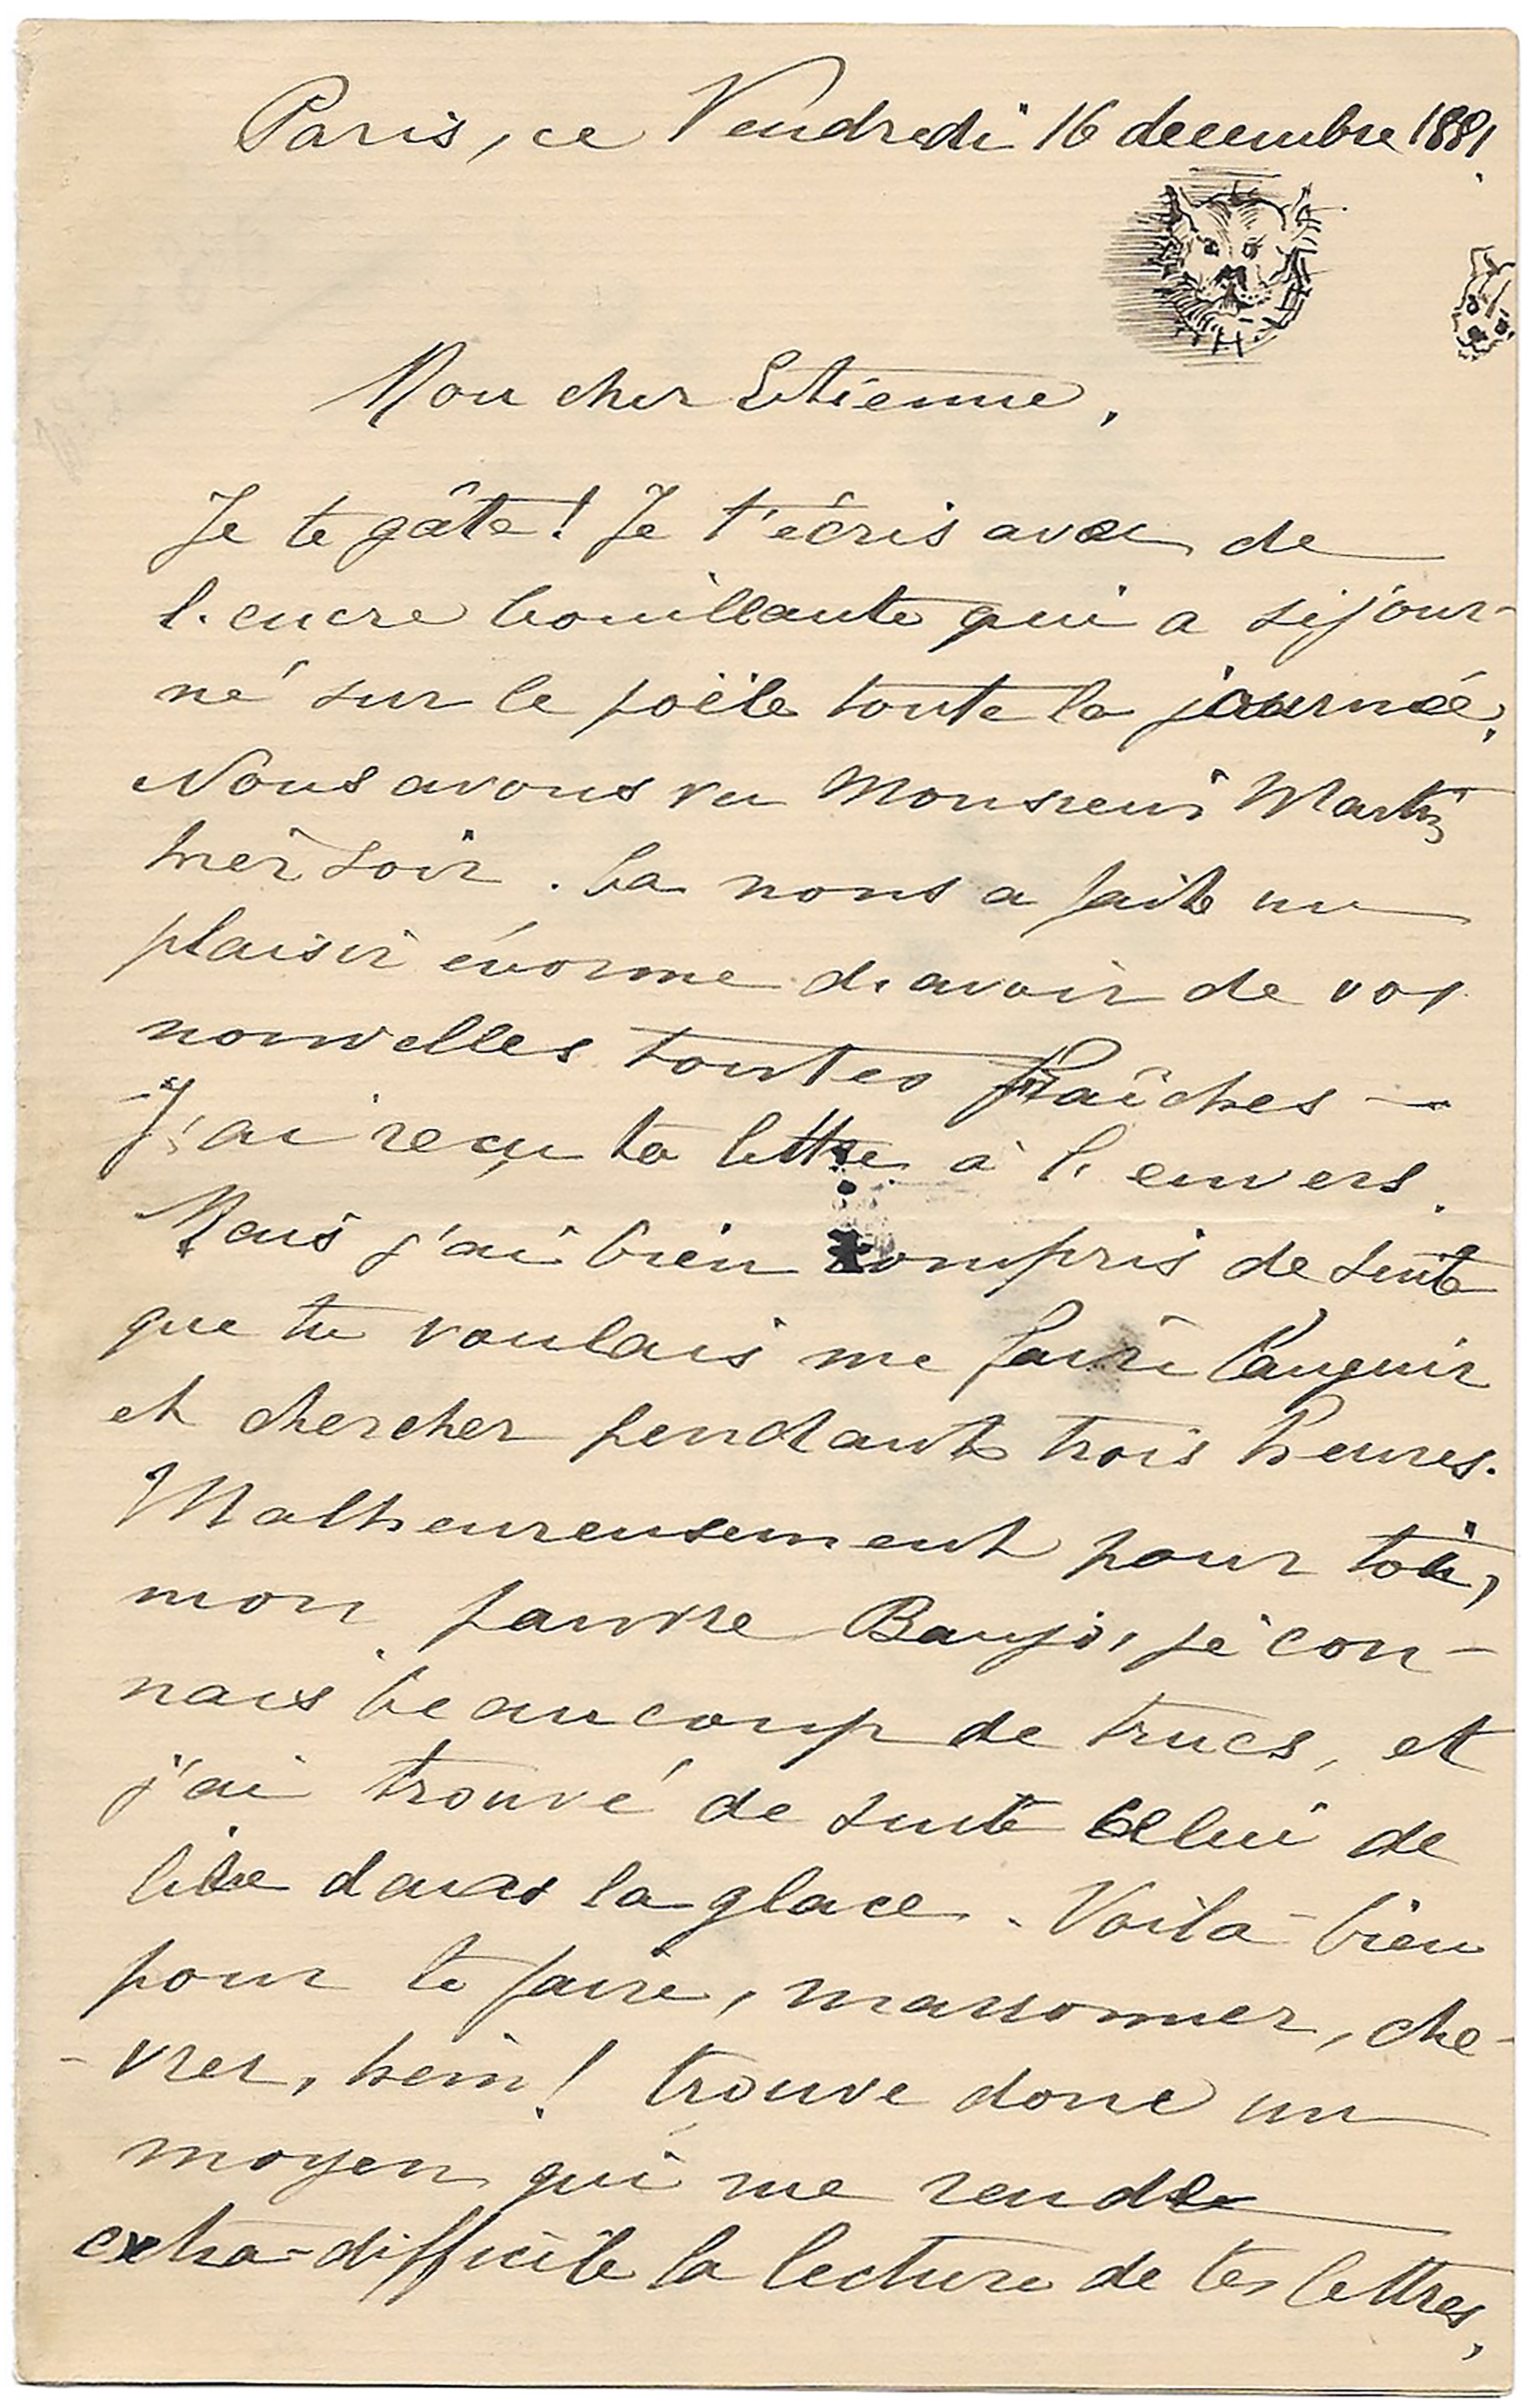 Paris, ce Vendredi 16 decembre 1881
Mon cher Etienne,
Je te gâte! Je t'écris avec de
l'encre bouillante qui a séjour-
né sur le poële toute la journée.
Nous avons vu Monsieur Martin
hier soir. Ca nous a faite un
plaisir énorme d'avoir de vos
nouvelles toutes fraîches —
J'ai reçu ta lettre à l'envers.
Mais j'ai bien compris de suite
que tu voulais me faire languir
et chercher pendant trois heures.
Malheureusement pour toi,
mon pauvre Banjo, je con-
nais beaucoup de trucs, et
j'ai trouvé de suite celui de
lire dans la glace. Voilà bien
pour te faire, marronner, che-
-vrer, hein! trouve donc un
moyen qui me rende
extra-difficile la lecture de tes lettres,